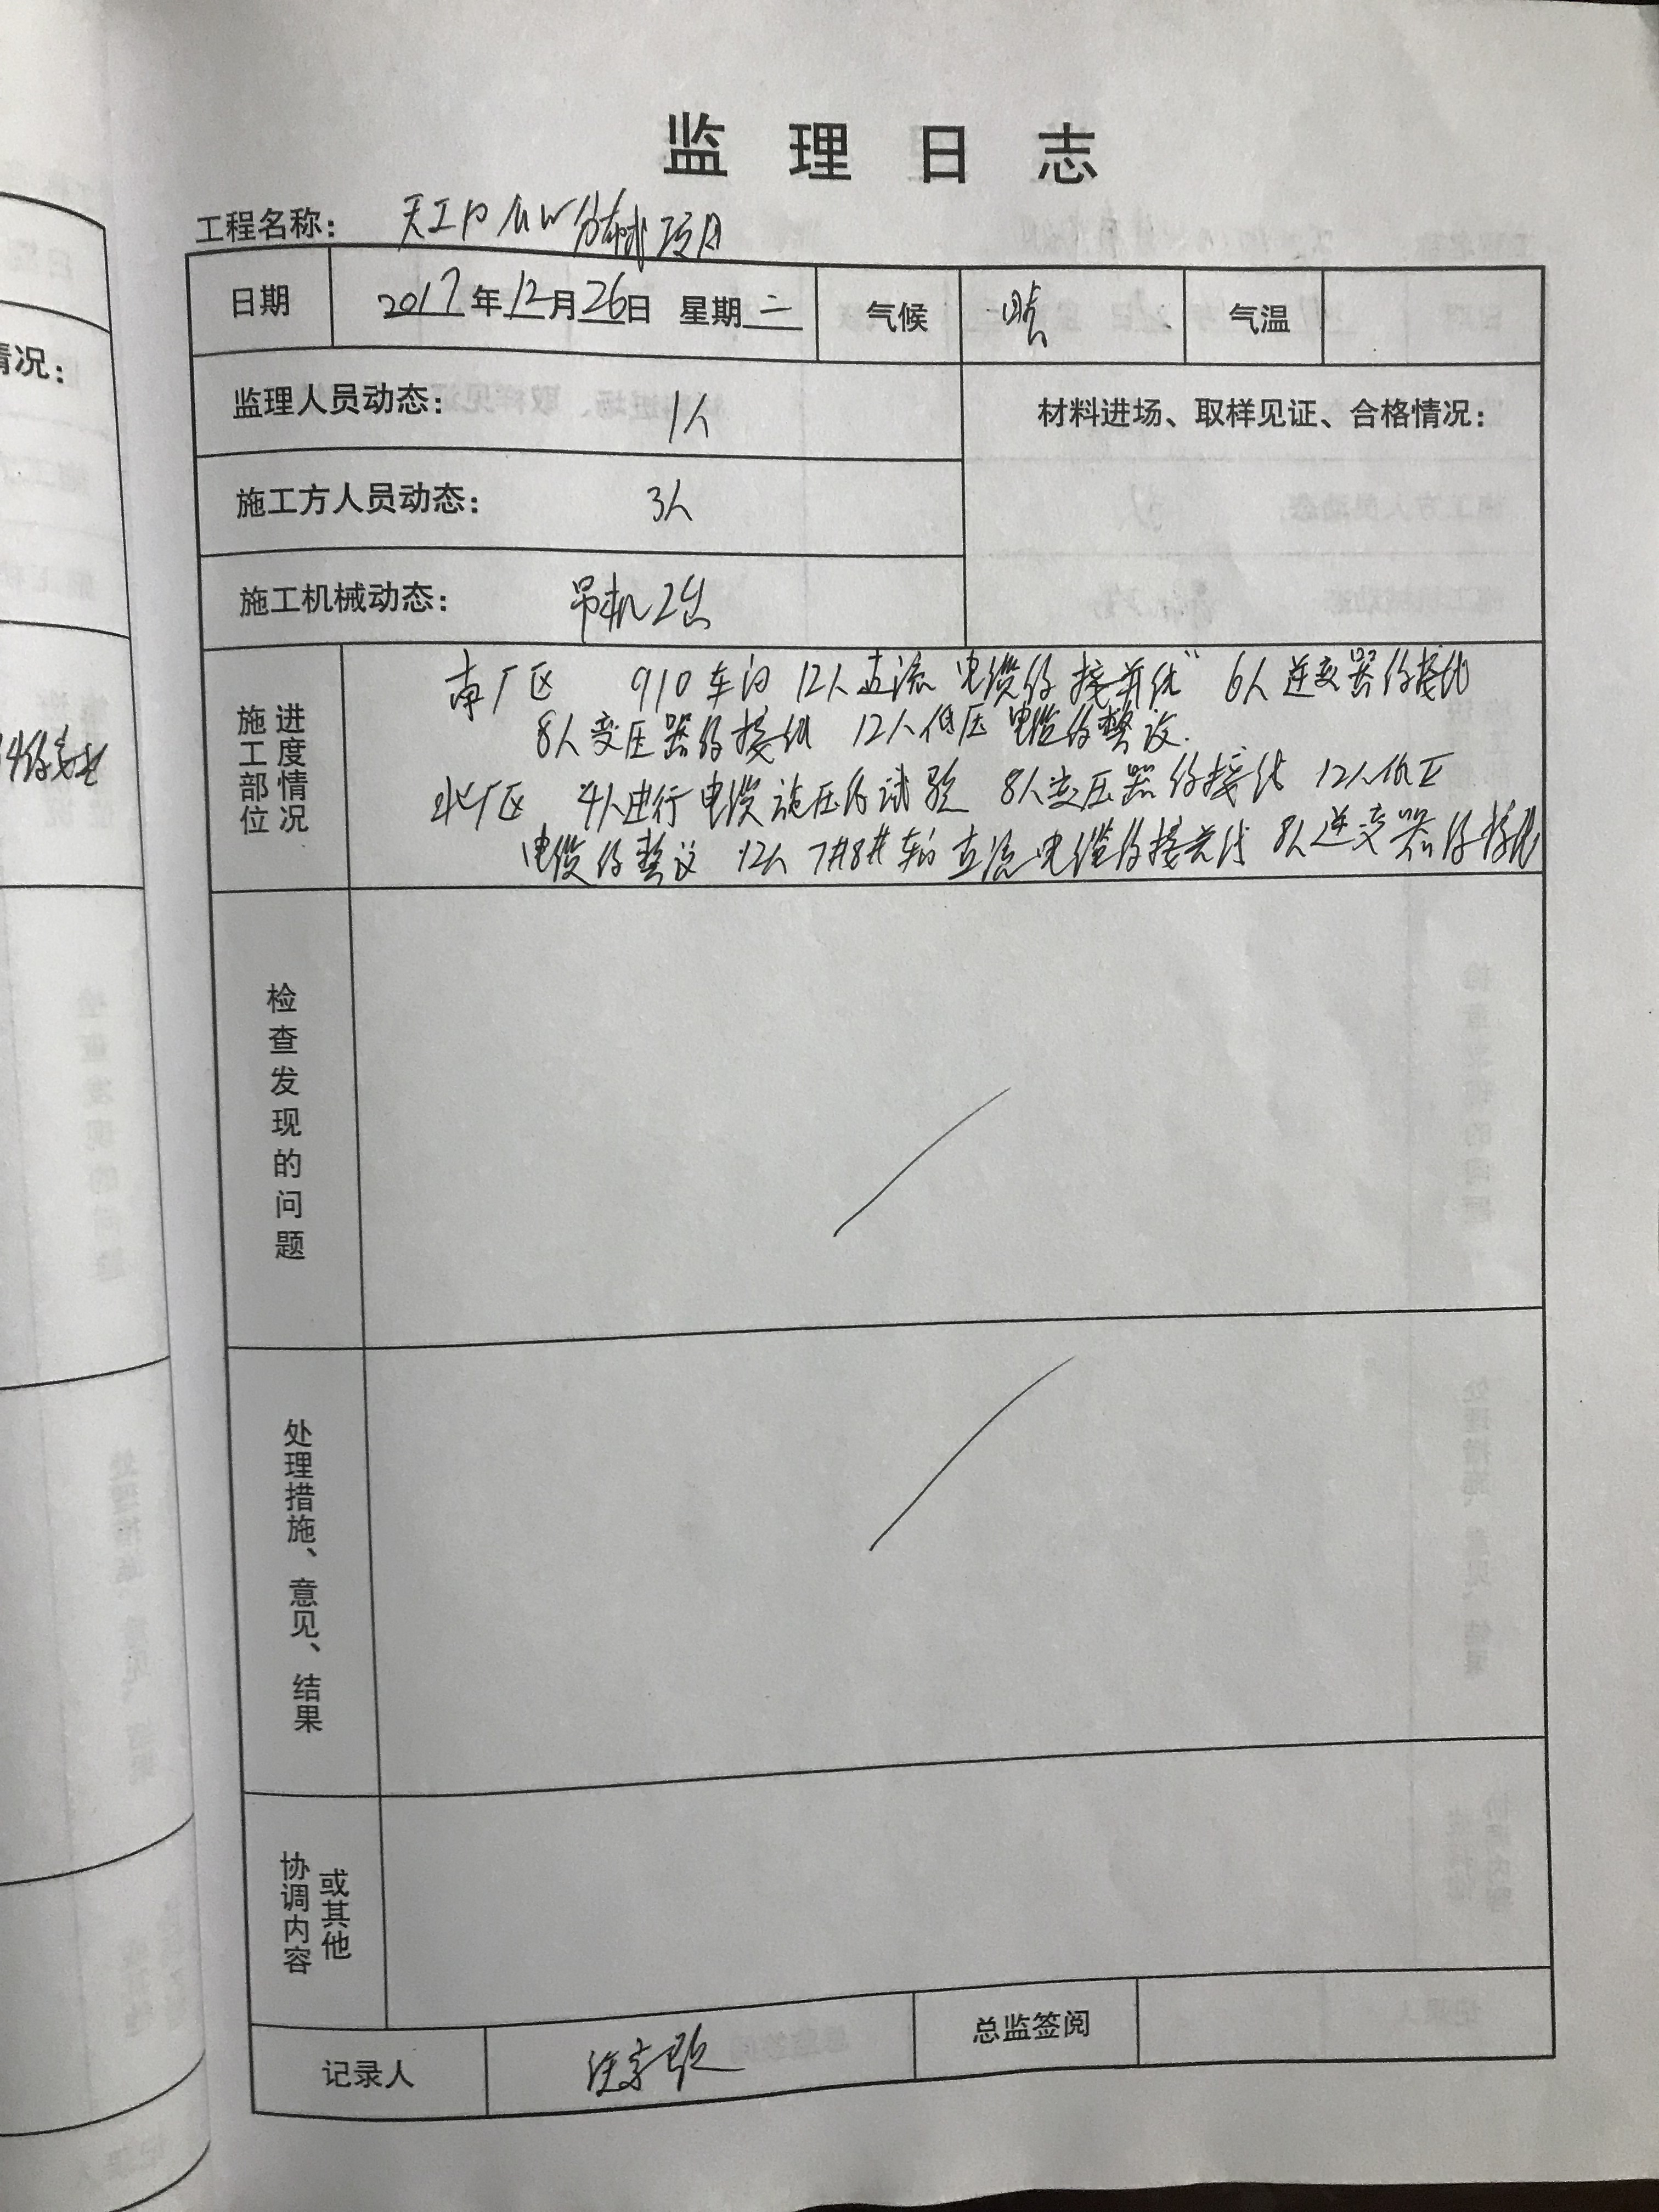 监理日志
工程名称： 天工 MW 分布式项目
日期 2017年12月26日 星期二 气候 晴 气温
监理人员动态： 1人 材料进场、取样见证、合格情况：
施工方人员动态： 3人
施工机械动态： 吊机2台
施工部位 进度情况
南厂区 910车间 12人直流电缆的接并线 6人逆变器的接线
8人变压器的接线 12人低压电缆的整设.
北厂区 4人进行电缆施压的试验 8人变压器的接线 12人低压
电缆的整设 12人 7#8#车间直流电缆的接并线 8人逆变器的接线
检查发现的问题
处理措施、意见、结果
协调内容 或其他
记录人 总监签阅
情况：